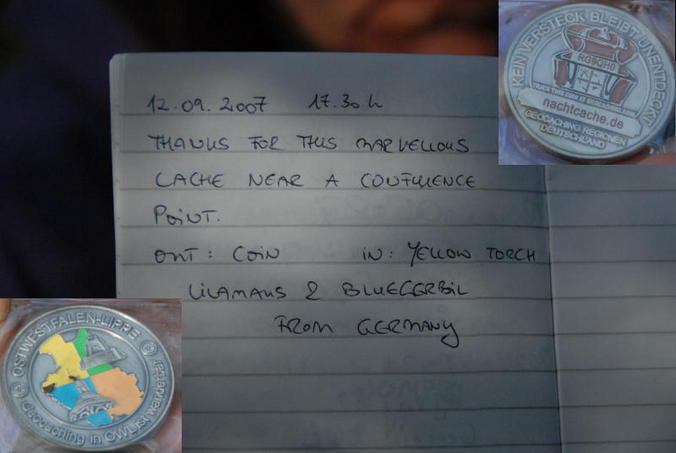 12.09.2007 17.30h
THANKS FOR THIS MARVELLOUS
CACHE NEAR A CONFLUENCE
POINT.
OUT: COIN IN: YELLOW TORCH
LILAMAUS & BLUEGERBIL
FROM GERMANY
KEIN VERSTECK BLEIBT UNENTDECKT
nachtcache.de
GEOCACHING REGIONEN
DEUTSCHLAND
OSTWESTFALEN-LIPPE
Geocaching in OWL ist wanderbar